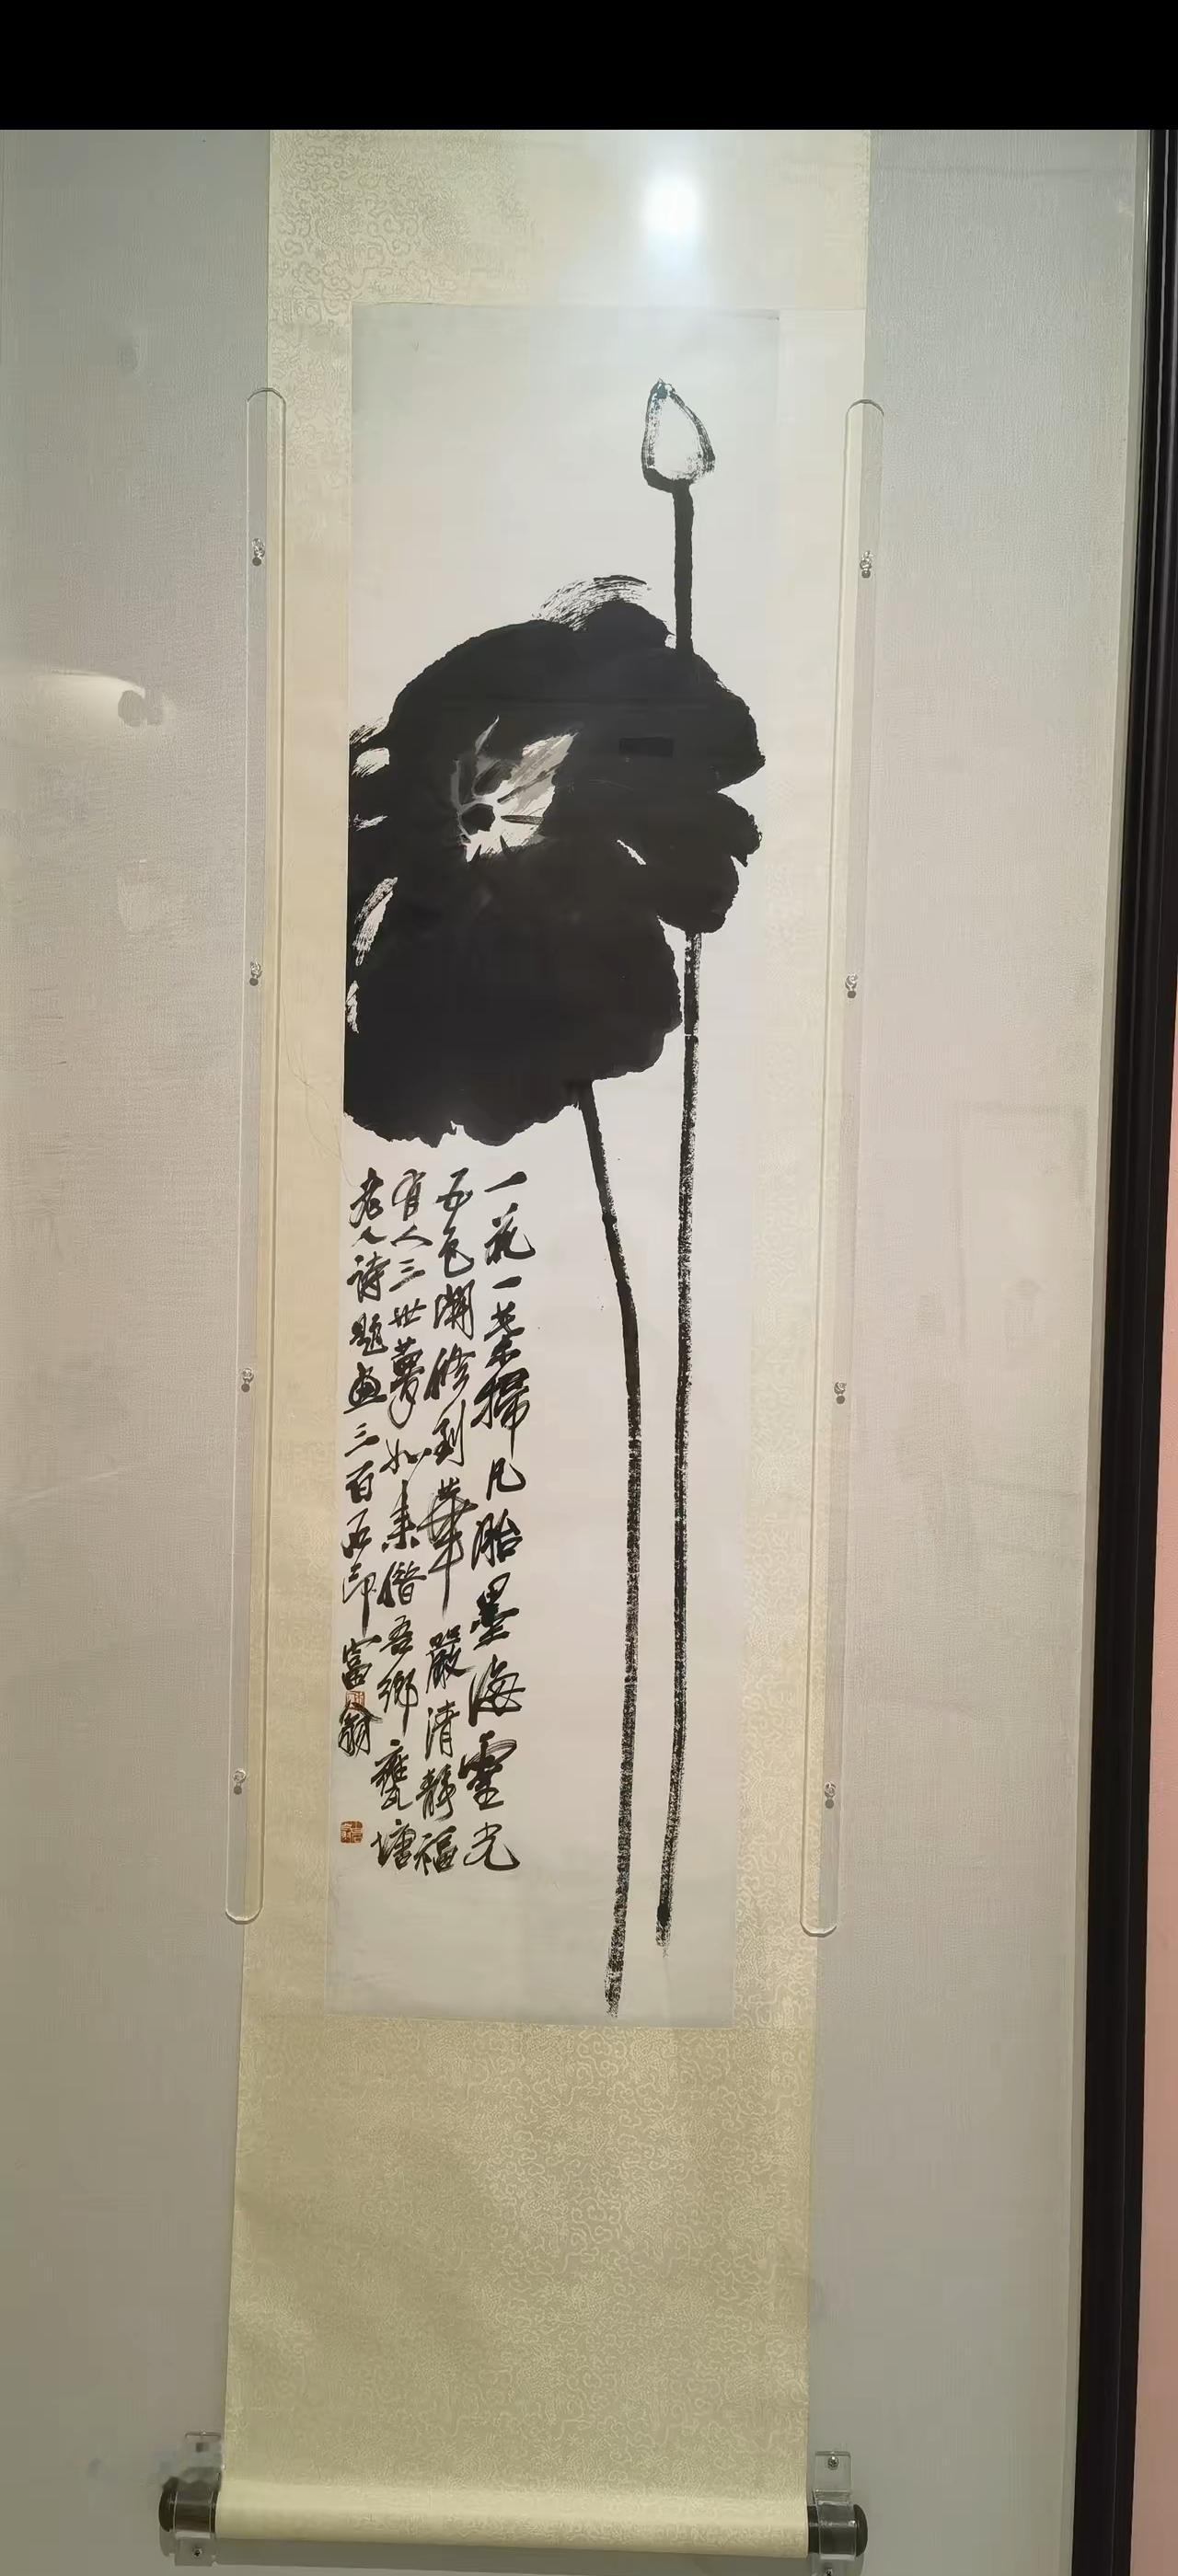 一花一葉掃凡胎墨海靈光
五色開修到華嚴清静福
有人三世夢如来借吾鄉甕塘
老人詩題畫三百石印富翁